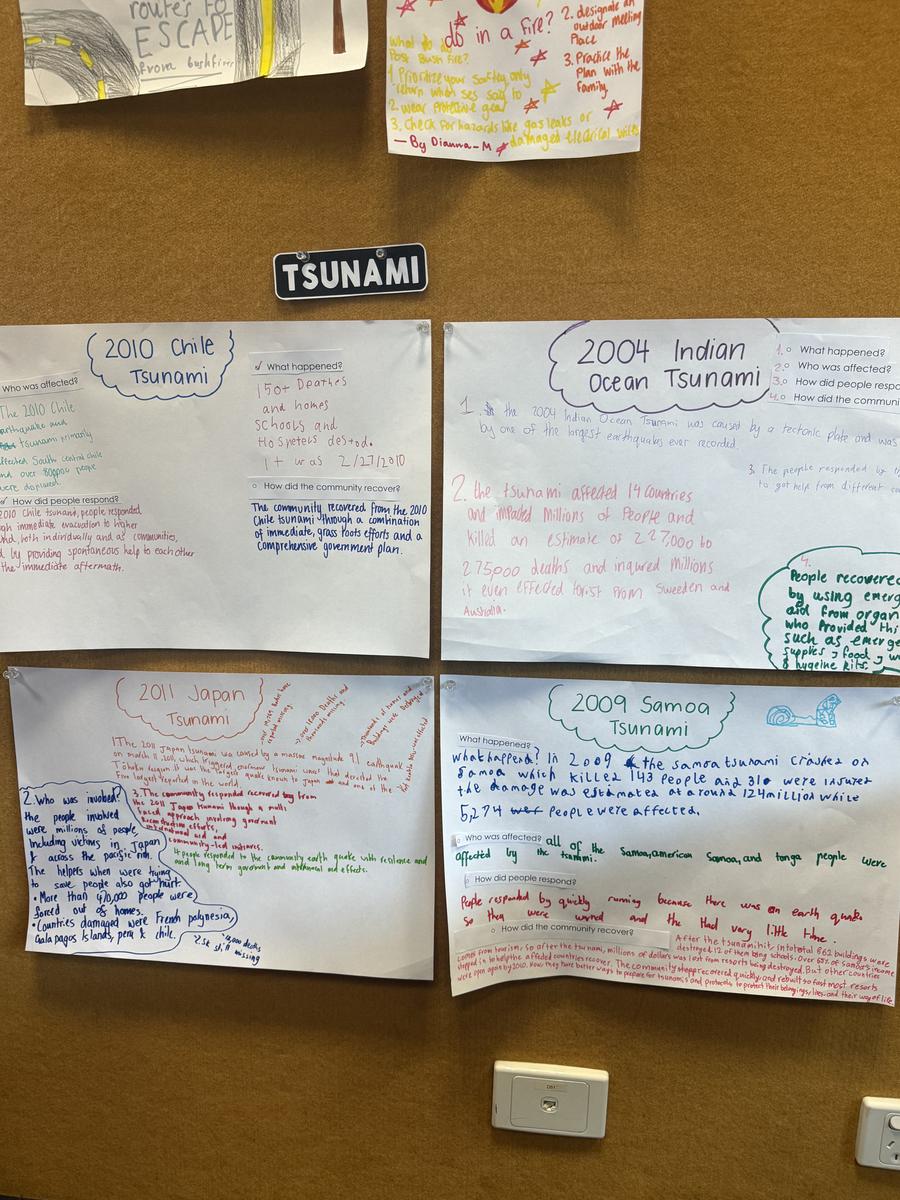 routes to
ESCAPE
from bushfires
do in a fire?
What to do
Post Bush Fire?
1. Prioritize your saftey only
return when ses said to
2. wear Protective gear
3. Check for hazards like gas leaks or
damaged electrical wires
— By Dianna-M
2. designate an
outdoor meeting
Place
3. Practice the
Plan with the
family.
TSUNAMI
2010 Chile
Tsunami
Who was affected?
The 2010 Chile
earthquake and
tsunami primarily
affected South central chile
and over 800,000 people
were displaced.
What happened?
150+ Deathes
and homes
schools and
Hospetels destod.
It was 2/27/2010
How did people respond?
2010 Chile tsunami, people responded
immediate evacuation to higher
both individually and as communities,
by providing spontaneous help to each other
the immediate aftermath.
How did the community recover?
The community recovered from the 2010
Chile tsunami through a combination
of immediate, grass roots efforts and a
comprehensive government plan.
2004 Indian
Ocean Tsunami
1. What happened?
2. Who was affected?
3. How did people respo
4. How did the communi
1. the 2004 Indian Ocean Tsunami was caused by a tectonic plate and was
by one of the largest earthquakes ever recorded.
2. the tsunami affected 14 countries
and impacted Millions of People and
killed an estimate of 227,000 to
275000 deaths and injured millions
it even effected torist from Sweeden and
Australia.
3. The people responded by
to get help from different
4.
People recovered
by using emerg
aid from organ
who Provided thi
such as emerge
supplies, food, w
& hygeine kits.
2011 Japan
Tsunami
1 The 2011 Japan tsunami was caused by a massive magnitude 9.1 earthquake
on march 11, 2011, which triggered enormous tsunami waves that devasted the
Tohoku region. It was the largest quake known to Japan and one of the
four largest reported in the world.
2. Who was involved?
the people involved
were millions of people,
Including victims in Japan
& across the pacific rim.
The helpers when were trying
to save people also got hurt.
• More than 470,000 people were
forced out of homes.
• Countries damaged were French polynesia,
Gala pagos Islands, peru & chile.
still missing
3. The community responded recovered by from
the 2011 Japan tsunami through a multi
faced approach involving goverment
Reconstruction efforts,
international aid and
community-led initiatives.
4 people responded to the community earth quake with resilience and
and long term goverment and international aid effects.
2009 Samoa
Tsunami
What happened?
what happend? In 2009 the samoa tsunami crashed on
Samoa which killed 143 people and 310 were insured
the damage was estamated at around 124 milliion while
5,274 People were affected.
Who was affected? all of the Samoa, american Samoa, and tonga people were
affected by the tsunami.
How did people respond?
People responded by quickly running because there was an earth quake
so they were worried and the Had very little time.
How did the community recover?
After the tsunami hit, in total 862 buildings were
destroyed 12 of them being schools. Over 65% of samoa's income
comes from tourism; so after the tsunami, millions of dollars was lost from resorts being destroyed. But other countries
stepped in to help the affeded countries recover. The community recovered quickly, and rebuilt so fast most resorts
were open again by 2010. Now they have better ways to prepare for tsunamis and protocols to protect their belongings, lives, and their way of life.